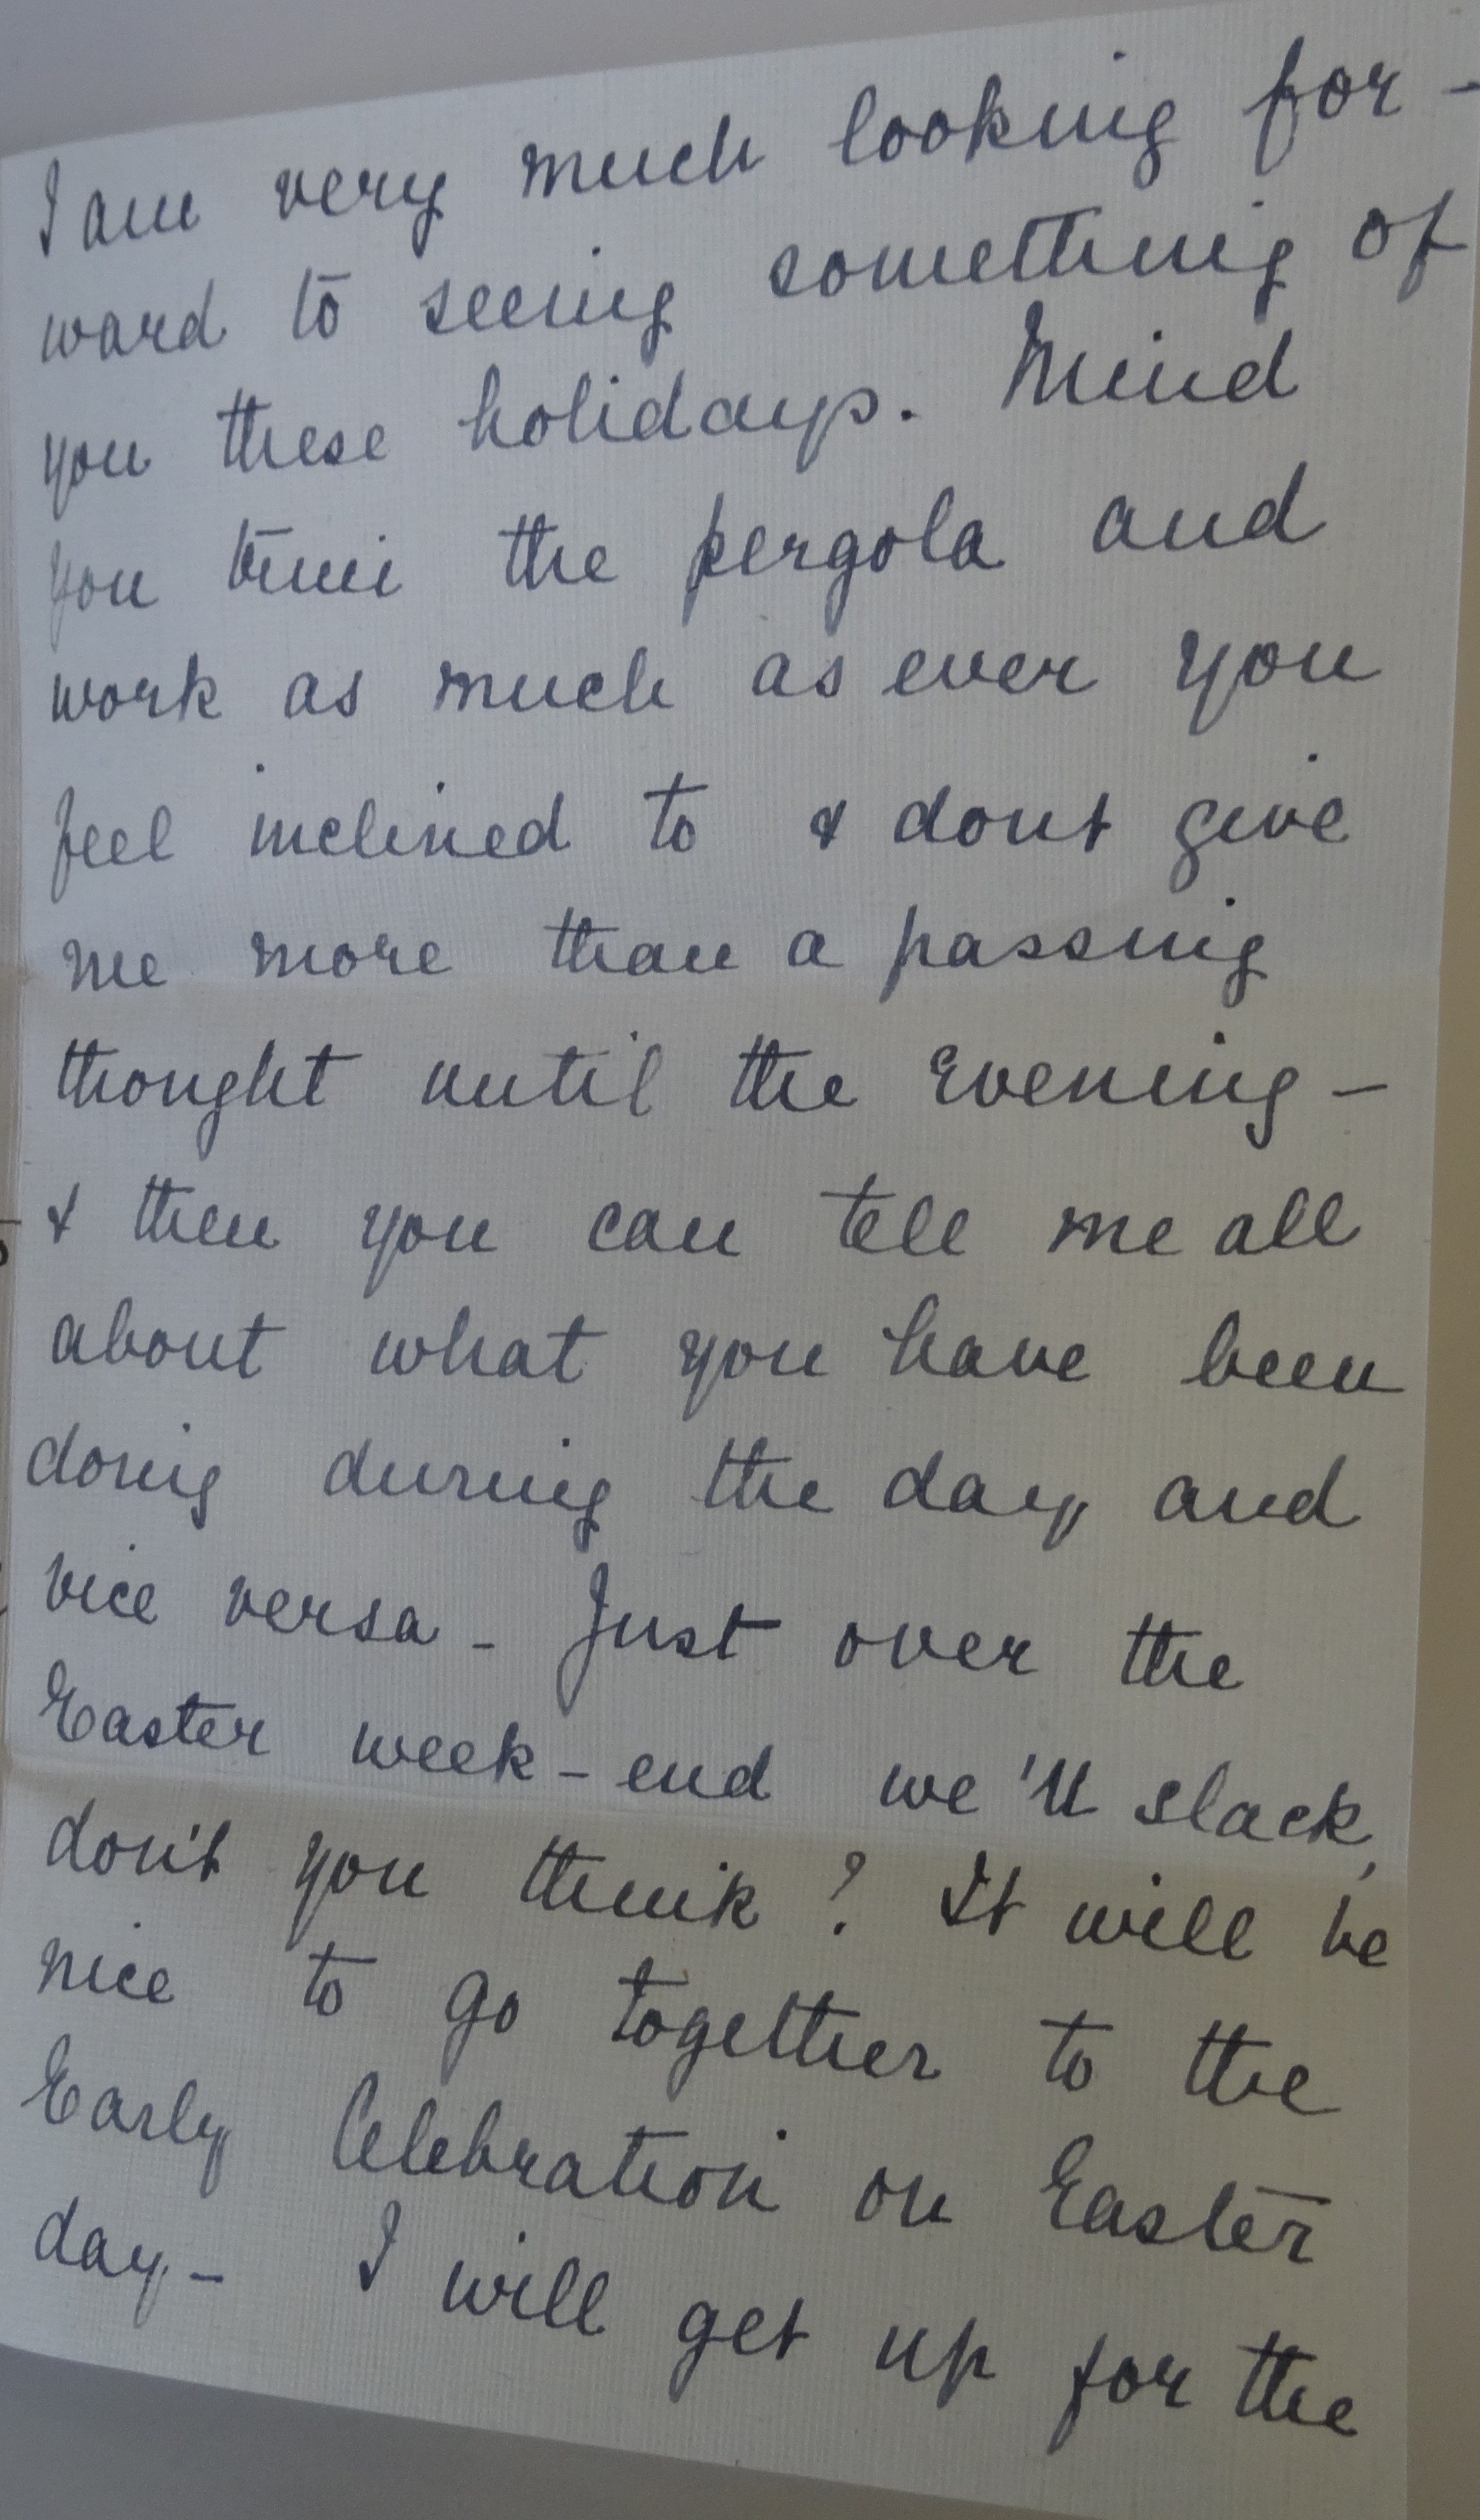 I am very much looking for-
ward to seeing something of
you these holidays. Mind
you trim the pergola and
work as much as ever you
feel inclined to & dont give
me more than a passing
thought until the evening –
& then you can tell me all
about what you have been
doing during the day, and
vice versa – Just over the
Easter week-end we'll slack,
don't you think? It will be
nice to go together to the
Early Celebration on Easter
day – I will get up for the